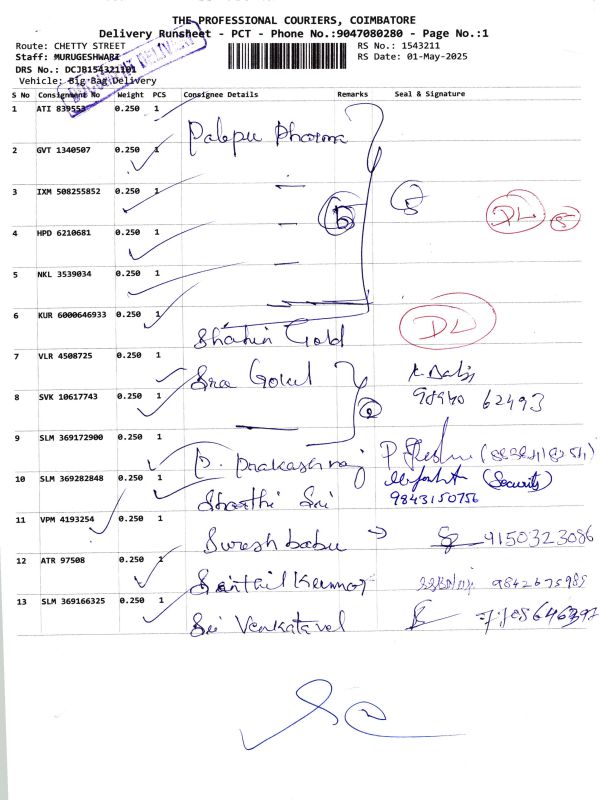 THE PROFESSIONAL COURIERS, COIMBATORE
Delivery Runsheet - PCT - Phone No.:9047080280 - Page No.:1
Route: CHETTY STREET RS No.: 1543211
Staff: MURUGESHWARI RS Date: 01-May-2025
DRS No.: DCJB154321101
Vehicle: Big Bag Delivery
S No Consignment No Weight PCS Consignee Details Remarks Seal & Signature
1 ATI 839553 0.250 1 Palepu Pharma
2 GVT 1340507 0.250 1
3 IXM 508255852 0.250 1 5 5 DL 5
4 HPD 6210681 0.250 1
5 NKL 3539034 0.250 1
6 KUR 6000646933 0.250 1 Shahin Gold DL
7 VLR 4508725 0.250 1 Sra Gokul
8 SVK 10617743 0.250 1 2 98940 62493
9 SLM 369172900 0.250 1 P. Prakash raj
10 SLM 369282848 0.250 1 Sharthi Sri (Security)
9843150756
11 VPM 4193254 0.250 1 Suresh babu 9150323086
12 ATR 97508 0.250 1 Santail Kumar 9842675985
13 SLM 369166325 0.250 1 Sri Venkatavel